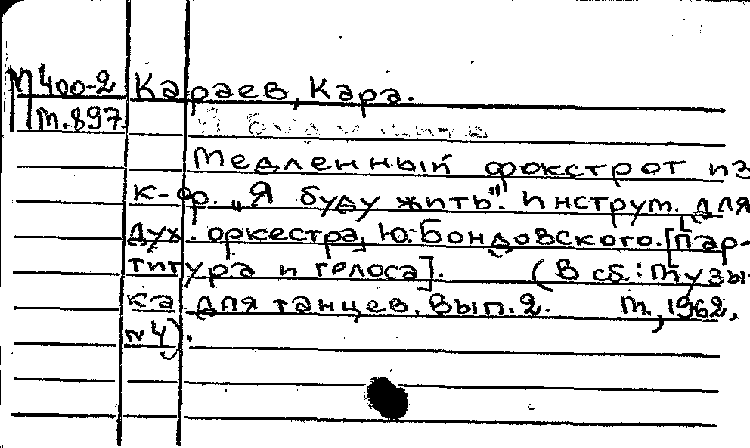 М400-2 Караев, Кара.
М.897.
Медленный фокстрот из
к-ф. „Я буду жить". Инструм. для
дух. оркестра, Ю. Бондовского. [Пар-
титура и голоса]. (В сб.: Музы-
ка для танцев. Вып. 2. М., 1962,
№ 4).